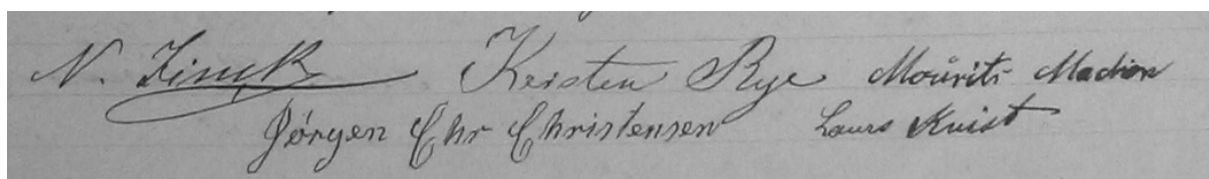 N. Zinck Kristen Rye Mourits Madsen
Jörgen Chr Christensen Laurs Kvist